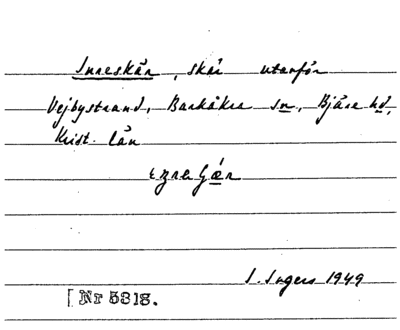 Inreskär, skär utanför
Vejbystrand, Barkåkra sn, Bjäre hd,
Krist. län
I. Ingers 1949
[ Nr 5318.